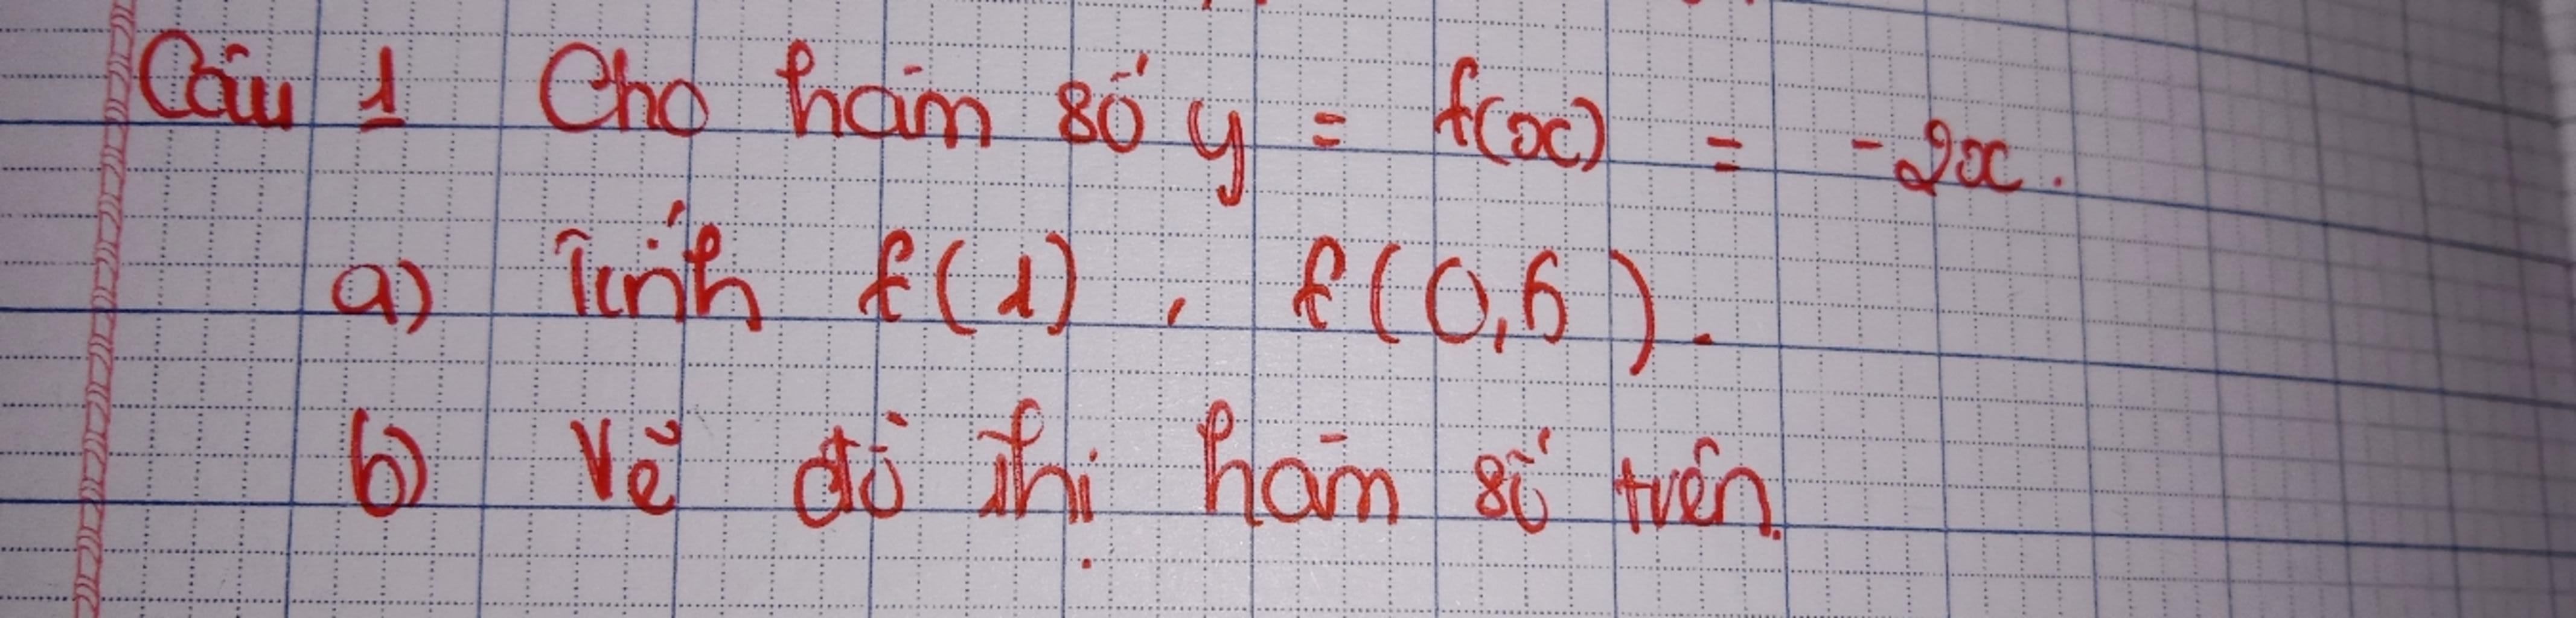 Câu 1 Cho hàm số y = f(x) = -2x.
a) Tính f(1), f(0,6).
b) Vẽ đồ thị hàm số trên.